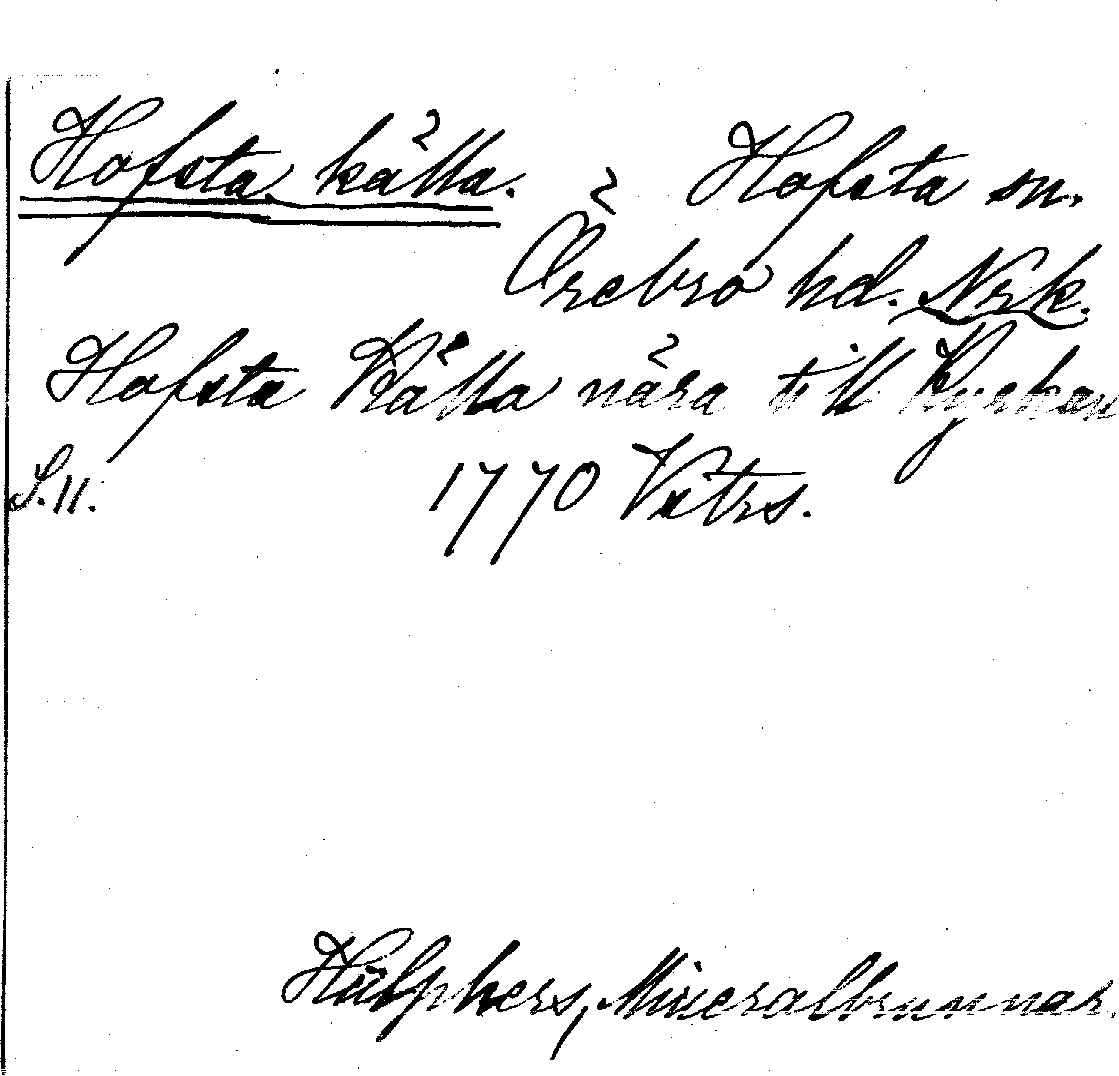 Hofsta källa. Hofsta sn.
Örebro hd. Nrk.
Hofsta Källa nära till Kyrkan
S. 11. 1770 Vetrs.
Hülphers, Mineralbrunnar.